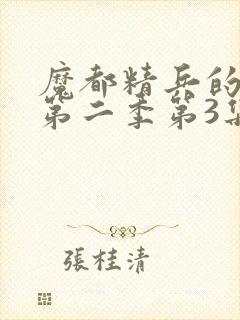 魔都精兵的
第二季第3集
張桂清